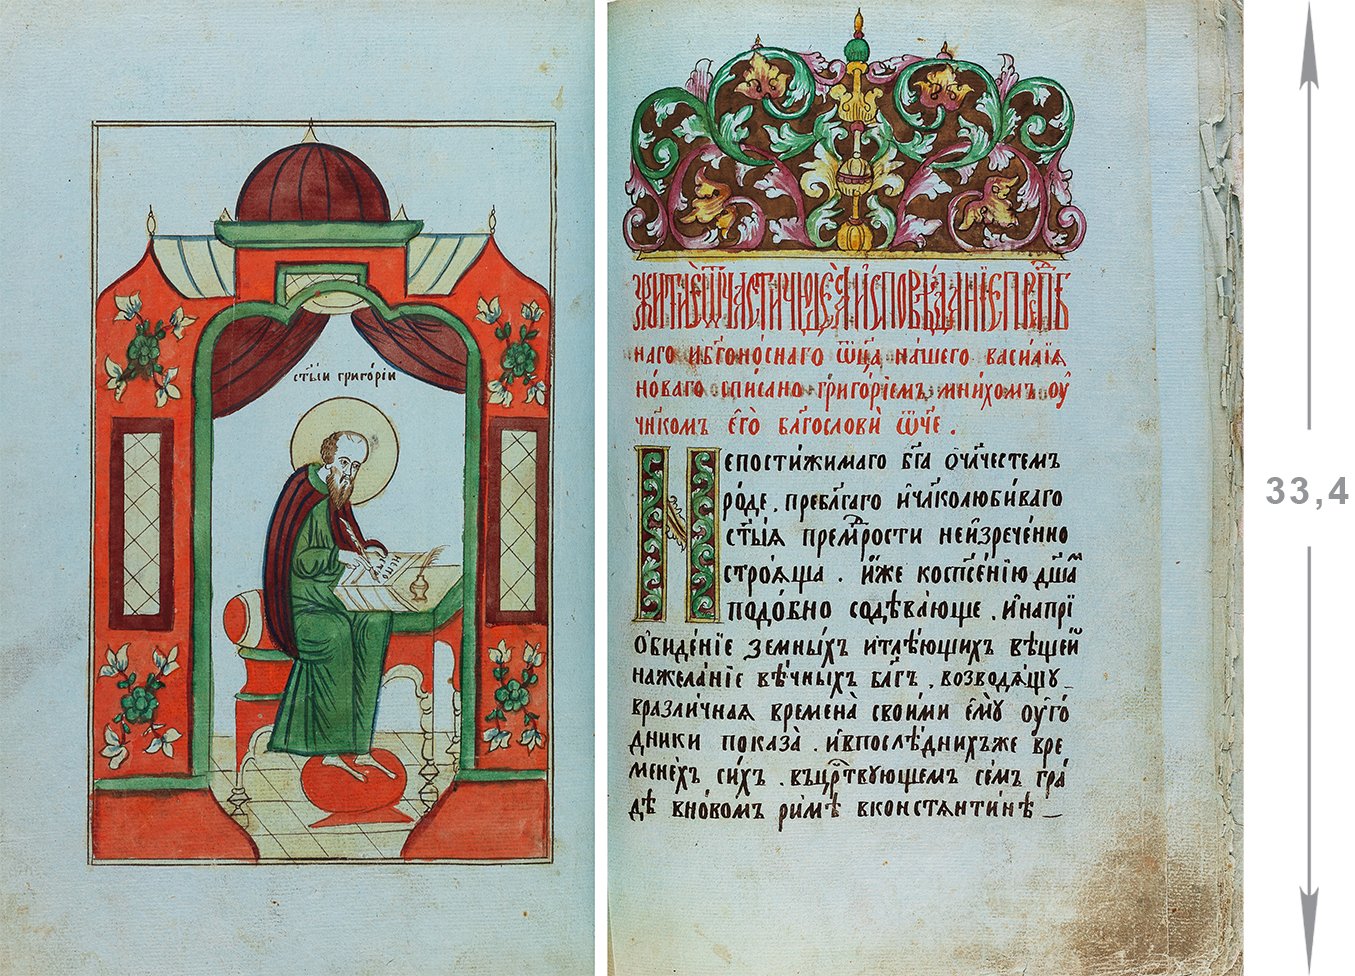 ст҃ы́и григо́рїи
житїѐ ѿчасти чюде́съ и҆споведанїе преп҃ѣ
наго и҆бг҃оно́снаго ѿц҃а на́шего васи́лїѧ
но́ваго списано григо́рїем мни́хомъ оу҆
чн҃ком его̀ блг҃ослови̂ ѿч҃е .
Непости́жимаго бг҃а о҆чл҃честем
ро́де . пребл҃гаго и҆чл҃колюби́ваго
ст҃ы́ѧ прем҃рости неи҆зрече́нно
стро́ѧща . и҆́же коспс҃е́нїю дш҃а́м
подо́бно содѣва́юще . и҆напрї
о҆би́де́нїе земны́хъ итлѣ́ющихъ ве́щей
нажела́нїе вѣ́чныхъ бл҃гъ . возводѧ́щу
вразли́чнаѧ времена̀ свои́ми ем̀у оу҆го́
дники показа̀ . и҆впослѣ́днихъже вре
менехъ си́хъ . въцр҃твующем се́мъ гра́
дѣ вно́вом ри́мѣ вконстѧнти́нѣ
33,4